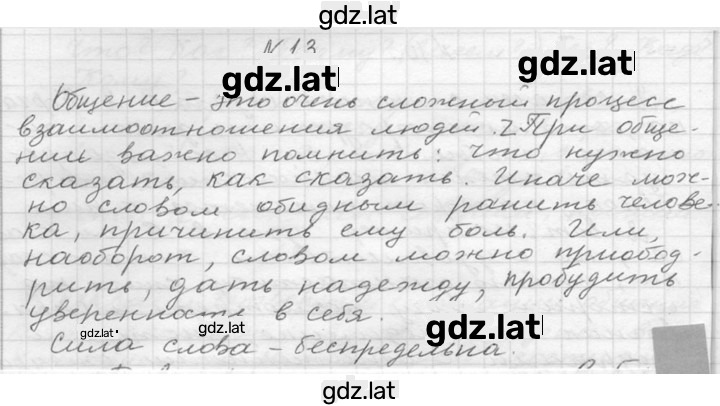 gdz.lat
N 13
gdz.lat
gdz.lat
Общение - это очень сложный процесс
взаимоотношения людей. 2 При обще-
нии важно помнить: что нужно
сказать, как сказать. Иначе мож-
но словом обидным ранить челове-
ка, причинить ему боль. Или,
наоборот, словом можно приобод-
рить, дать надежду, пробудить
уверенность в себя.
gdz.lat
gdz.lat
gdz.lat
Сила слова - беспредельна.
gdz.lat